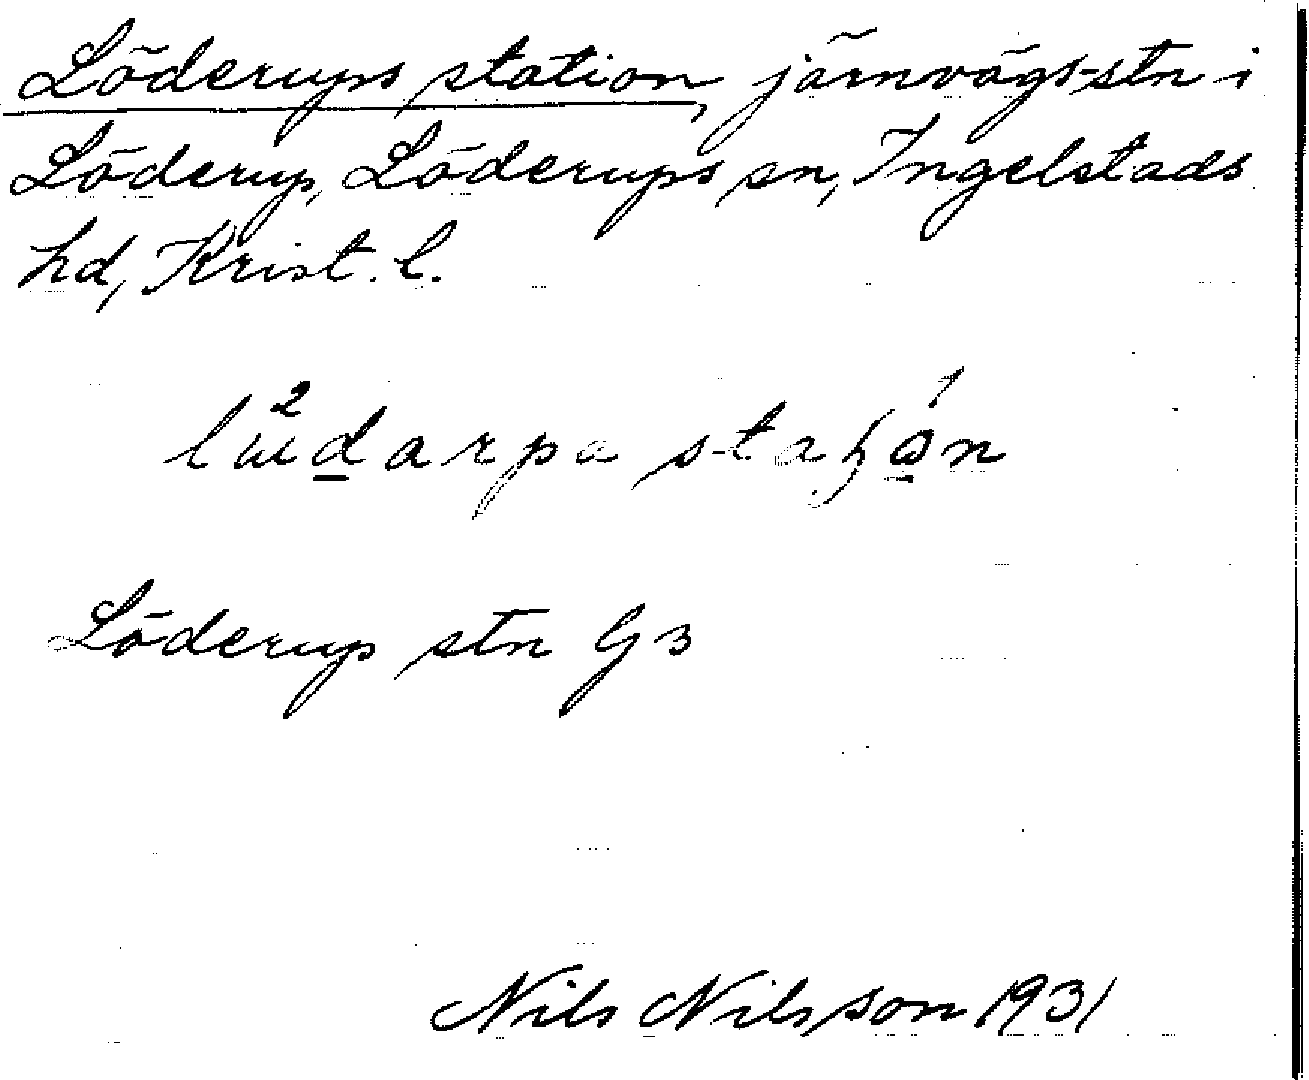 Löderups station, järnvägs-stn i
Löderup, Löderups sn, Ingelstads
hd, Krist. l.
Löderup stn G3
Nils Nilsson 1931